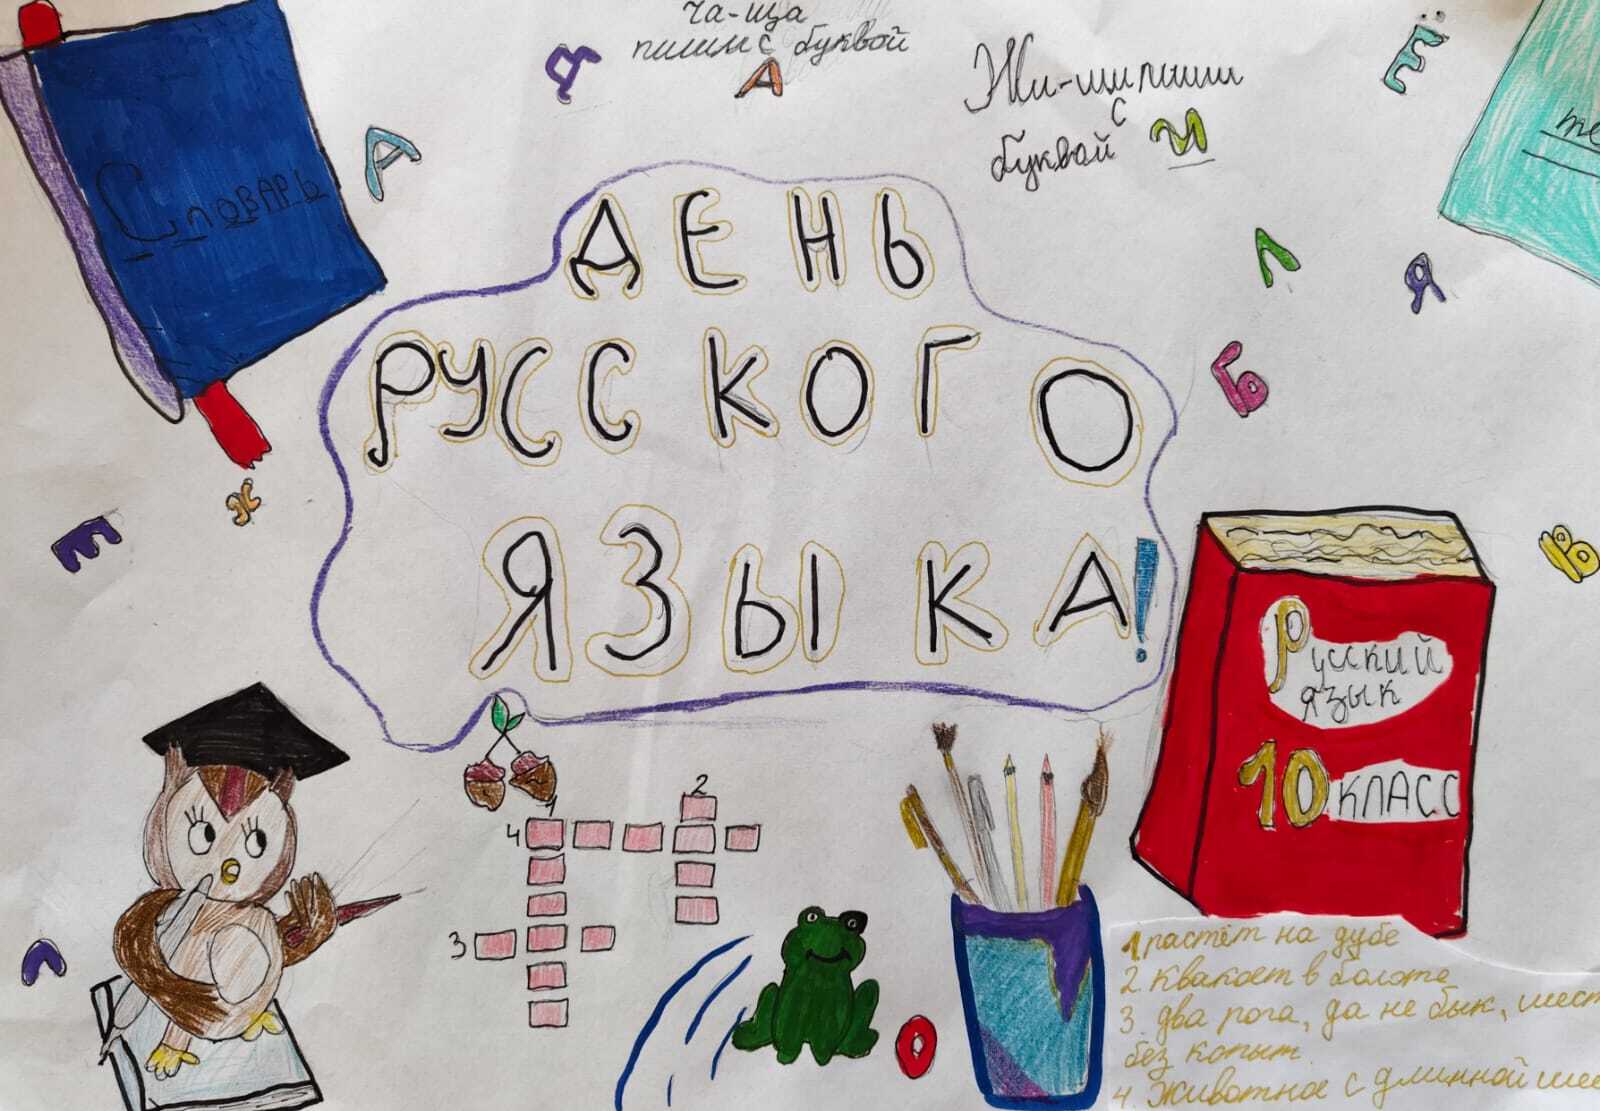 ча-ща
пиши с буквой
А
Жи-ши пиши
с
буквой И
Ё
Я
А
Словарь
ДЕНЬ
РУССКОГО
ЯЗЫКА!
Л
Я
Б
Ж
Е
В
Русский
язык
10 класс
1
2
4
3
Л
О
1. растёт на дубе
2. Квакает в болоте
3. два рога, да не бык, шест
без копыт.
4. Животное с длинной шее